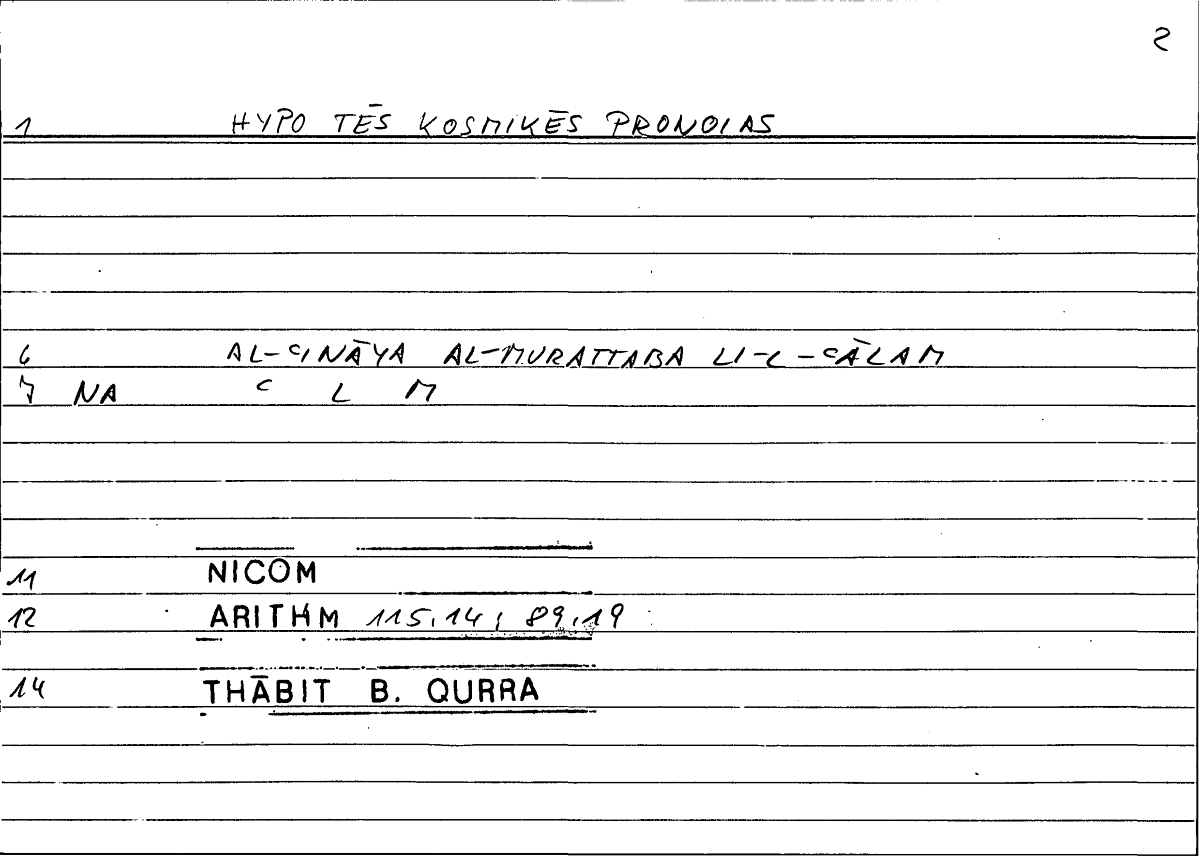 2
1 HYPO TĒS KOSMIKĒS PRONOIAS
6 AL-ᶜINĀYA AL-MURATTABA LI-L-ᶜĀLAM
7 NA ᶜ L M
11 NICOM
12 ARITHM 115,14; 89,19
14 THĀBIT B. QURRA